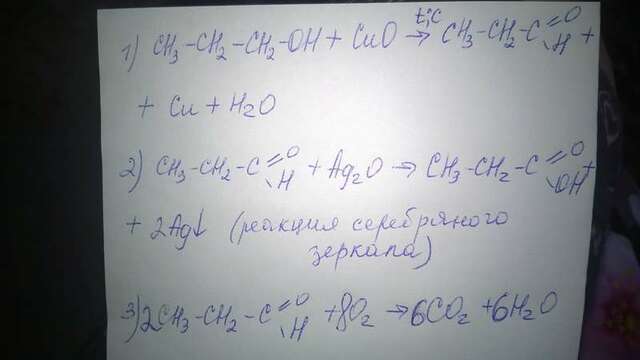 1) CH₃-CH₂-CH₂-OH + CuO →(t,°C) CH₃-CH₂-C(=O)-H +
+ Cu + H₂O
2) CH₃-CH₂-C(=O)-H + Ag₂O → CH₃-CH₂-C(=O)-OH +
+ 2Ag↓ (реакция серебряного
зеркала)
3) 2CH₃-CH₂-C(=O)-H + 8O₂ → 6CO₂ + 6H₂O